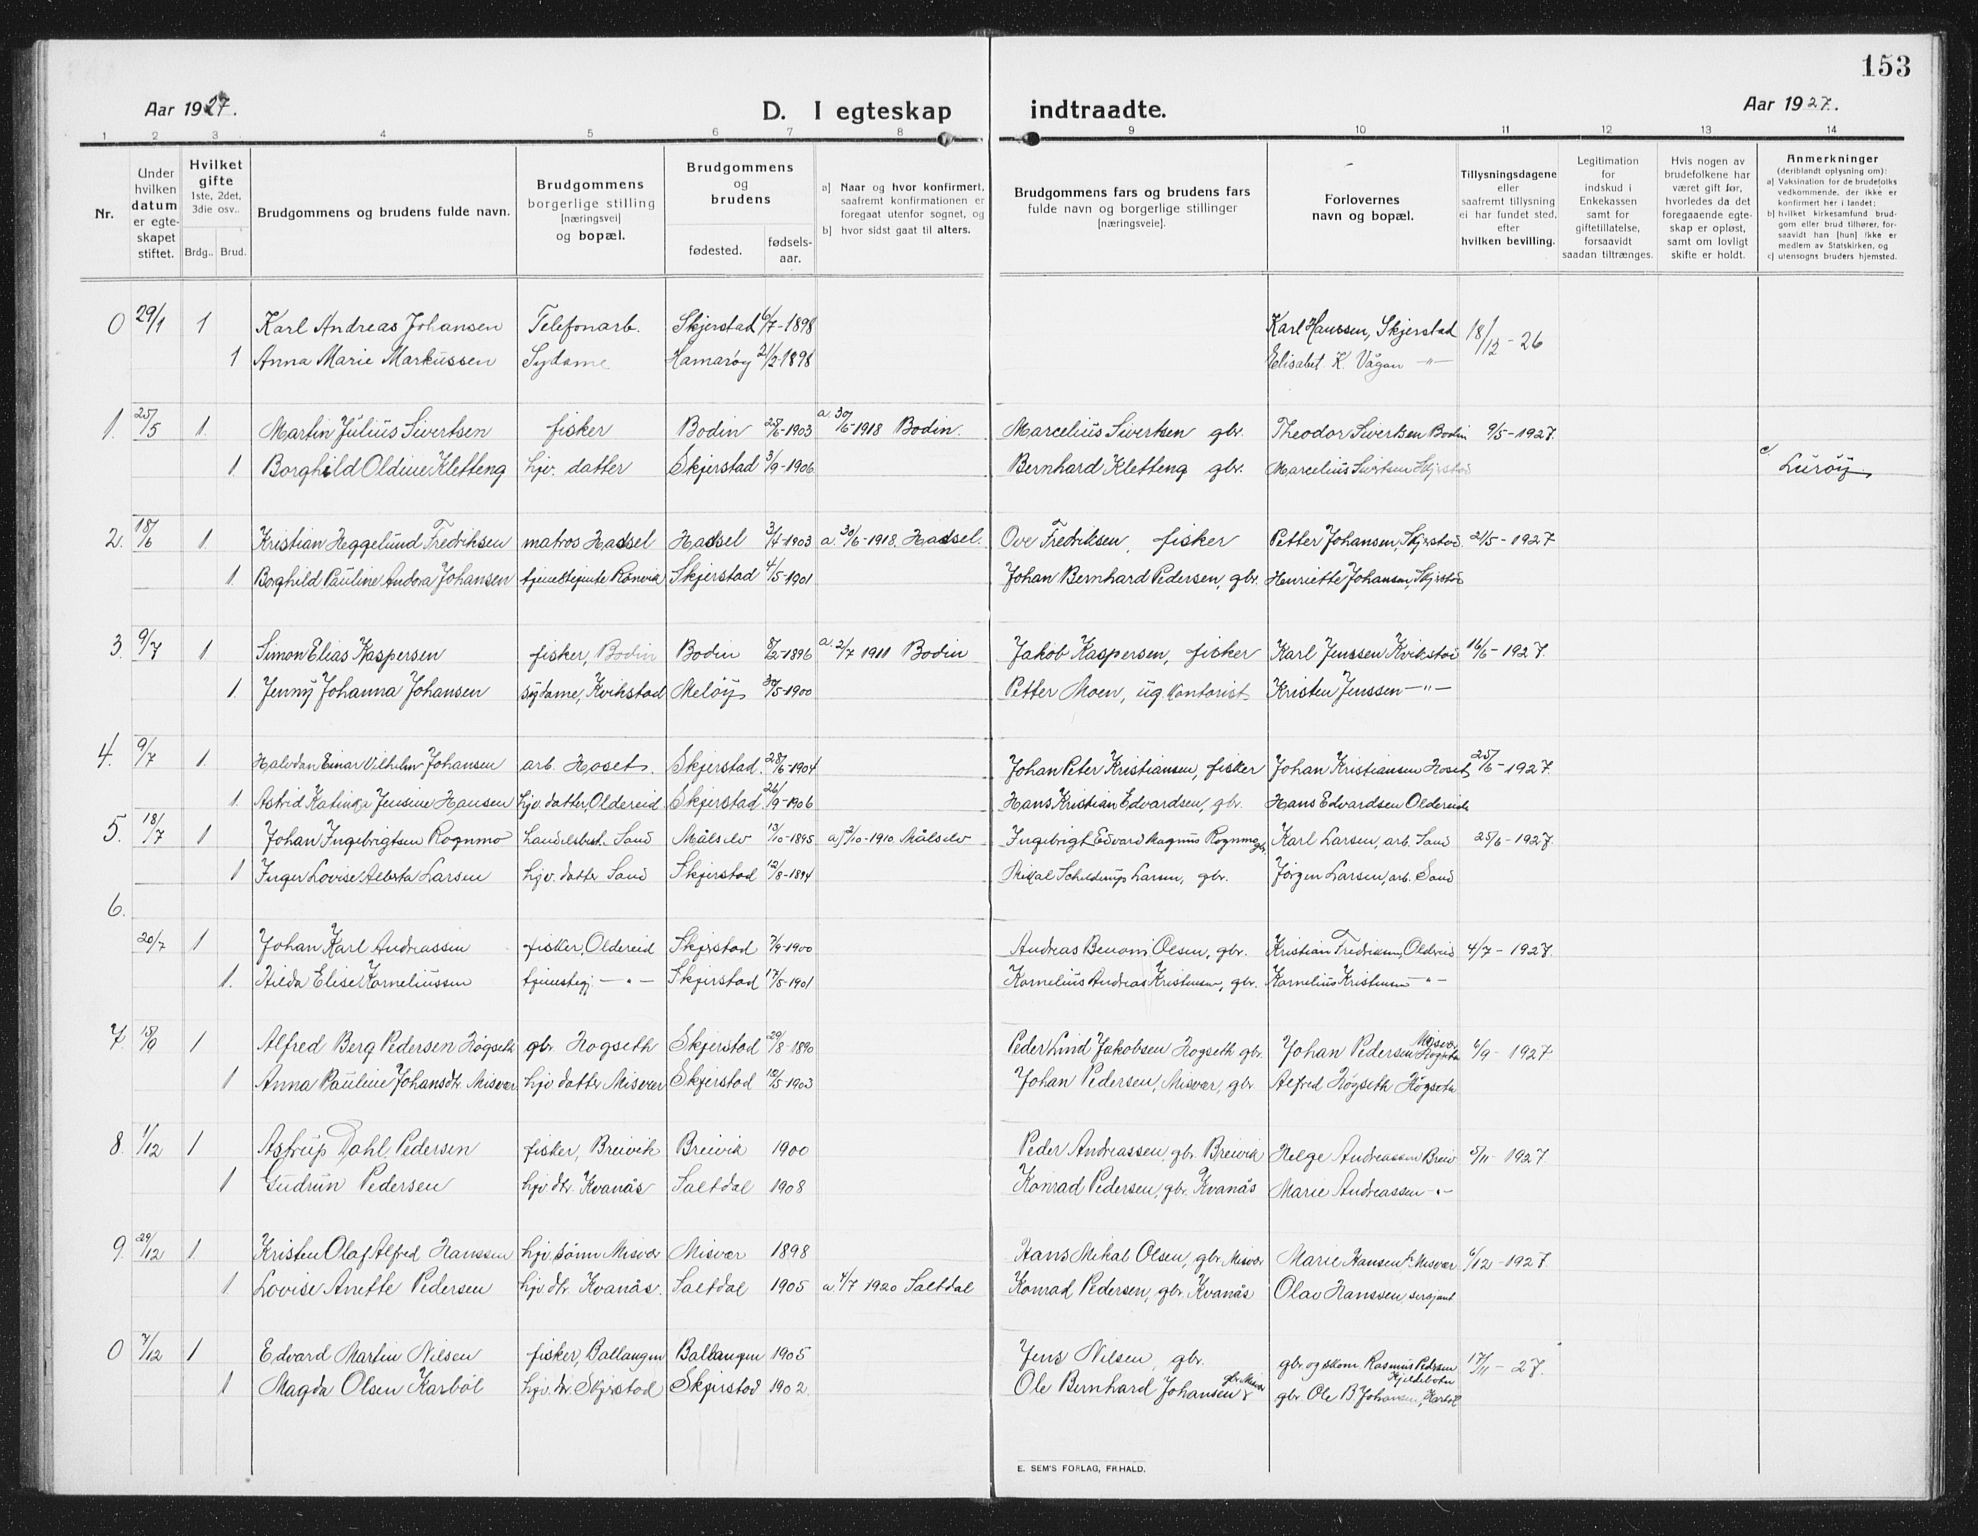 153
Aar 1927. D. I egteskap indtraadte. Aar 1927.
1 2 3 4 5 6 7 8 9 10 11 12 13 14
Nr.
Under hvilken datum er egte-skapet stiftet.
Hvilket gifte 1ste, 2det, 3die osv.. Brdg.. Brud.
Brudgommens og brudens fulde navn.
Brudgommens borgerlige stilling [næringsvei] og bopæl.
Brudgommens og brudens fødested. fødsels-aar.
a] Naar og hvor konfirmert, saafremt konfirmationen er foregaat utenfor sognet, og
b] hvor sidst gaat til alters.
Brudgommens fars og brudens fars fulde navn og borgerlige stillinger [næringsveie].
Forlovernes navn og bopæl.
Tillysningsdagene eller saafremt tillysning ei har fundet sted, efter hvilken bevilling.
Legitimation for indskud i Enkekassen samt for giftetillatelse, forsaavidt saadan tiltrænges.
Hvis nogen av brudefolkene har været gift før, hvorledes da det foregaaende egte-skap er opløst, samt om lovligt skifte er holdt.
Anmerkninger (deriblandt oplysning om):
a] Vaksination for de brudefolks vedkommende, der ikke er konfirmert her i landet;
b] hvilket kirkesamfund brud-gom eller brud tilhører, for-saavidt han [hun] ikke er medlem av Statskirken, og
c] utensogns bruders hjemsted.
0 29/1 1 Karl Andreas Johansen Telefonarb. Skjerstad 6/7-1898 Karl Hanssen, Skjerstad 18/12-26
1 Anna Marie Markussen Sydame Hamarøy 21/2-1898 Elisabet K. Vågan -"-
1. 25/5 1. Martin Julius Sivertsen fisker Bodin 25/6-1903 a. 30/6-1918 Bodin. Marcelius Sivertsen gbr. Theodor Sivertsen Bodin 9/5-1927.
1. Borghild Oldine Kletteng hjv. datter Skjerstad 3/9-1906 Bernhard Kletteng gbr. Marcelius Sivertsen Skjerstad c/ Lurøy
2. 18/6 1. Kristian Heggelund Fredriksen matros Hadsel Hadsel 3/4-1903 a. 30/6-1918. Hadsel. Ove Fredriksen, fisker Petter Johansen, Skjerstad. 21/5-1927
1. Borghild Pauline Andora Johansen tjenestejente Rønvik Skjerstad 4/5-1901 Johan Bernhard Pedersen, gbr. Henriette Johansen, Skjerstad
3. 9/7 1 Simon Elias Kaspersen fisker, Bodin Bodin 8/2-1896 a. 2/7 1911 Bodin Jakob Kaspersen, fisker Karl Jenssen Kvikstad 16/6-1927.
1. Jenny Johanna Johansen sydame, Kvikstad Meløy 30/5-1900 Petter Moen, ug. kontorist Kristen Jenssen -"-
4. 9/7 1. Halvdan Einar Vilhelm Johansen arb. Hoset. Skjerstad. 28/6-1904 Johan Peter Kristiansen, fisker Johan Kristiansen Hoset 25/6-1927.
1. Astrid Katinka Jensine Hansen hjv. datter, Oldereid Skjerstad 26/9-1906 Hans Kristian Edvardsen, gbr. Hans Edvardsen Oldereid
5. 18/7 1 Johan Ingebrigtsen Rognmo handelsbest. Sand Målselv 13/10-1895 a) 2/10-1910 Målselv Ingebrigt Edvard Magnus Rognmo gbr. Karl Larsen, arb. Sand 25/6-1927.
1 Inger Lovise Alberta Larsen hjv. datter Sand Skjerstad 12/8-1894 Mikal Schelderup Larsen, gbr. Jørgen Larsen, arb. Sand
6.
20/7 1 Johan Karl Andreassen fisker, Oldereid Skjerstad 7/9-1900 Andreas Benoni Olsen, gbr. Kristian Fredriksen, Oldereid 4/7-1927.
1. Hilda Elise Korneliussen tjenestepj -"- Skjerstad 17/5-1901 Kornelius Andreas Kristensen, gbr. Kornelius Kristensen -"-
7. 18/9 1 Alfred Berg Pedersen Høgseth gbr. Høgseth Skjerstad 29/8-1890 Peder Lind Jakobsen Høgseth gbr. Johan Pedersen Misvær 6/9-1927.
1 Anna Pauline Johansdtr Misvær hjv datter Misvær Skjerstad 10/5-1903 Johan Pedersen, Misvær, gbr. Alfred Høgseth Høgseth
8. 1/12 1 Astrup Dahl Pedersen fisker, Breivik Breivik 1900 Peder Andreassen, gbr. Breivik Helge Andreassen Breiv 5/11-1927.
1 Gudrun Pedersen hjv dtr. Kvanås Saltdal 1908 Konrad Pedersen, gbr. Kvanås Marie Andreassen -"-
9. 29/12 1 Kristen Olaf Alfred Hanssen hjv. sønn Misvær Misvær 1898 Hans Mikal Olsen, gbr. Misvær Marie Hansen Misvær 6/12-1927.
1 Lovise Anette Pedersen hjv. dtr. Kvanås. Saltdal 1905 a. 4/7 1920 Saltdal Konrad Pedersen, gbr. Kvanås Olav Hanssen, sersjant
0 7/12 1 Edvard Martin Nilsen fisker, Ballangen Ballangen 1905 Jens Nilsen, gbr. gbr. og skom. Rasmus Pedersen Kjeldebotn 17/11-27.
1 Magda Olsen Karbøl hjv. dtr. Skjerstad Skjerstad 1902. Ole Bernhard Johansen gbr. Misvær gbr. Ole B. Johansen, Karbøl
E. SEM'S FORLAG, FR.HALD.